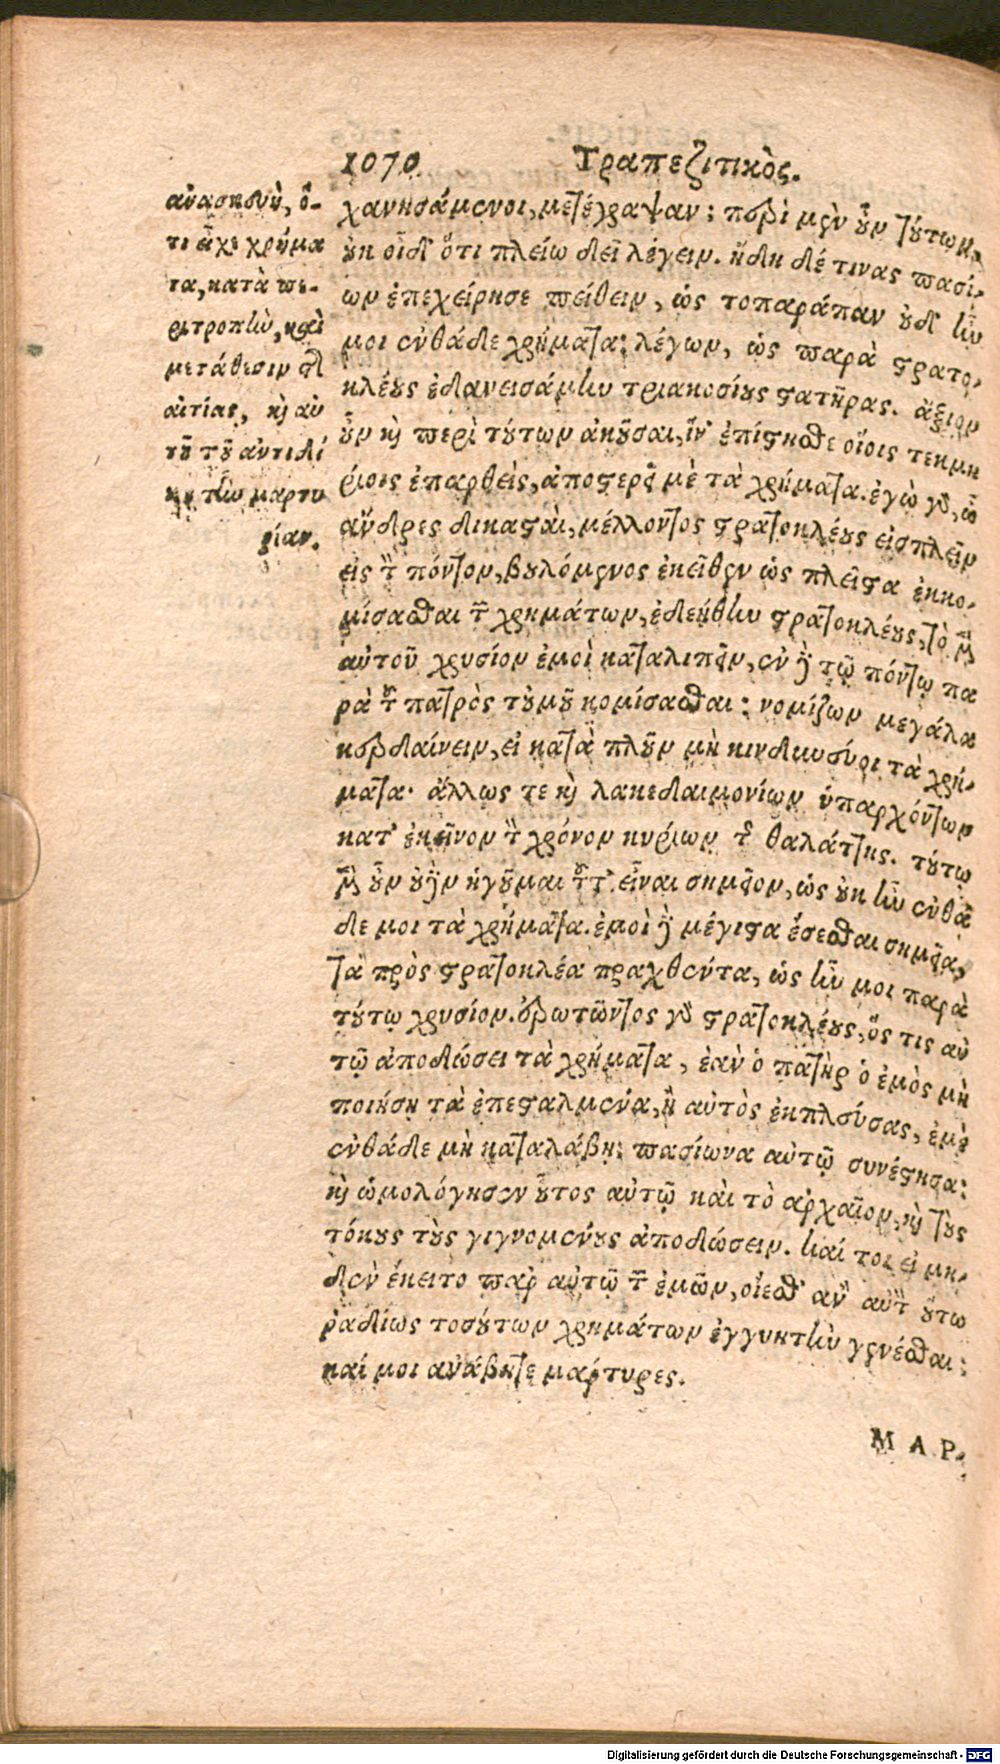 1070 Τραπεζιτικὸς.
ἀνασκευὴ, ὅ-
τι εἶχε χρήμα
τα, κατὰ πε-
ριτροπὴν, καὶ
μετάθεσιν τῆς
αἰτίας, καὶ αὐ
τοῦ τοῦ ἀντιδί
κου τὴν μαρτυ
ρίαν.
χανησάμενοι, μετέγραψαν; περὶ μὲν οὖν τούτων,
οὐκ οἶδ' ὅτι πλείω δεῖ λέγειν. ἤδη δέ τινας πασί-
ων ἐπεχείρησε πείθειν, ὡς τοπαράπαν οὐδ' ἦν
μοι ἐνθάδε χρήματα; λέγων, ὡς παρὰ στρατο-
κλέους ἐδανεισάμην τριακοσίους στατῆρας. ἄξιον
οὖν καὶ περὶ τούτων ἀκοῦσαι, ἵν' ἐπίστησθε οἵοις τεκμη
ρίοις ἐπαρθεὶς, ἀποστερεῖ μὲ τὰ χρήματα. ἐγὼ γὰρ, ὦ
ἄνδρες δικασταὶ, μέλλοντος στρατοκλέους εἰσπλεῖν
εἰς τὸν πόντον, βουλόμενος ἐκεῖθεν ὡς πλεῖστα ἐκκο-
μίσασθαι τῶν χρημάτων, ἐδεήθην στρατοκλέους, τὸ μὲν
αὐτοῦ χρυσίον ἐμοὶ καταλιπεῖν, ἐν δὲ τῷ πόντῳ πα
ρὰ τοῦ πατρὸς τοὐμοῦ κομίσασθαι; νομίζων μεγάλα
κερδαίνειν, εἰ κατὰ πλοῦν μὴ κινδυνεύοι τὰ χρή-
ματα· ἄλλως τε καὶ λακεδαιμονίων ὑπαρχόντων
κατ' ἐκεῖνον τὸν χρόνον κυρίων τῆς θαλάττης. τούτῳ
μὲν οὖν οὐδὲν ἡγοῦμαι τοῦτ' εἶναι σημεῖον, ὡς οὐκ ἦν ἐνθά
δε μοι τὰ χρήματα. ἐμοὶ δὲ μέγιστα ἔσεσθαι σημεῖα,
τὰ πρὸς στρατοκλέα πραχθέντα, ὡς ἦν μοι παρὰ
τούτῳ χρυσίον. ἐρωτῶντος γὰρ στρατοκλέους, ὅς τις αὐ
τῷ ἀποδώσει τὰ χρήματα, ἐὰν ὁ πατὴρ ὁ ἐμὸς μὴ
ποιήσῃ τὰ ἐπεσταλμένα, ἢ αὐτὸς ἐκπλεύσας, ἐμὲ
ἐνθάδε μὴ καταλάβῃ; πασίωνα αὐτῷ συνέστησα;
καὶ ὡμολόγησεν οὗτος αὐτῷ καὶ τὸ ἀρχαῖον, καὶ τοὺς
τόκους τοὺς γιγνομένους ἀποδώσειν. καί τοι εἰ μη-
δὲν ἔκειτο παρ' αὐτῷ τῶν ἐμῶν, οἴεσθ' ἂν αὐτὸν οὕτω
ῥαδίως τοσούτων χρημάτων ἐγγυητὴν γενέσθαι;
καί μοι ἀνάβητε μάρτυρες.
ΜΑΡ-
Digitalisierung gefördert durch die Deutsche Forschungsgemeinschaft - DFG